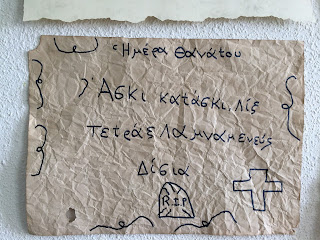 Ἡμέρα θανάτου
Ἄσκι κατάσκι λίξ
τετράξ λαμναμενεύς
Δίσια
R.I.P